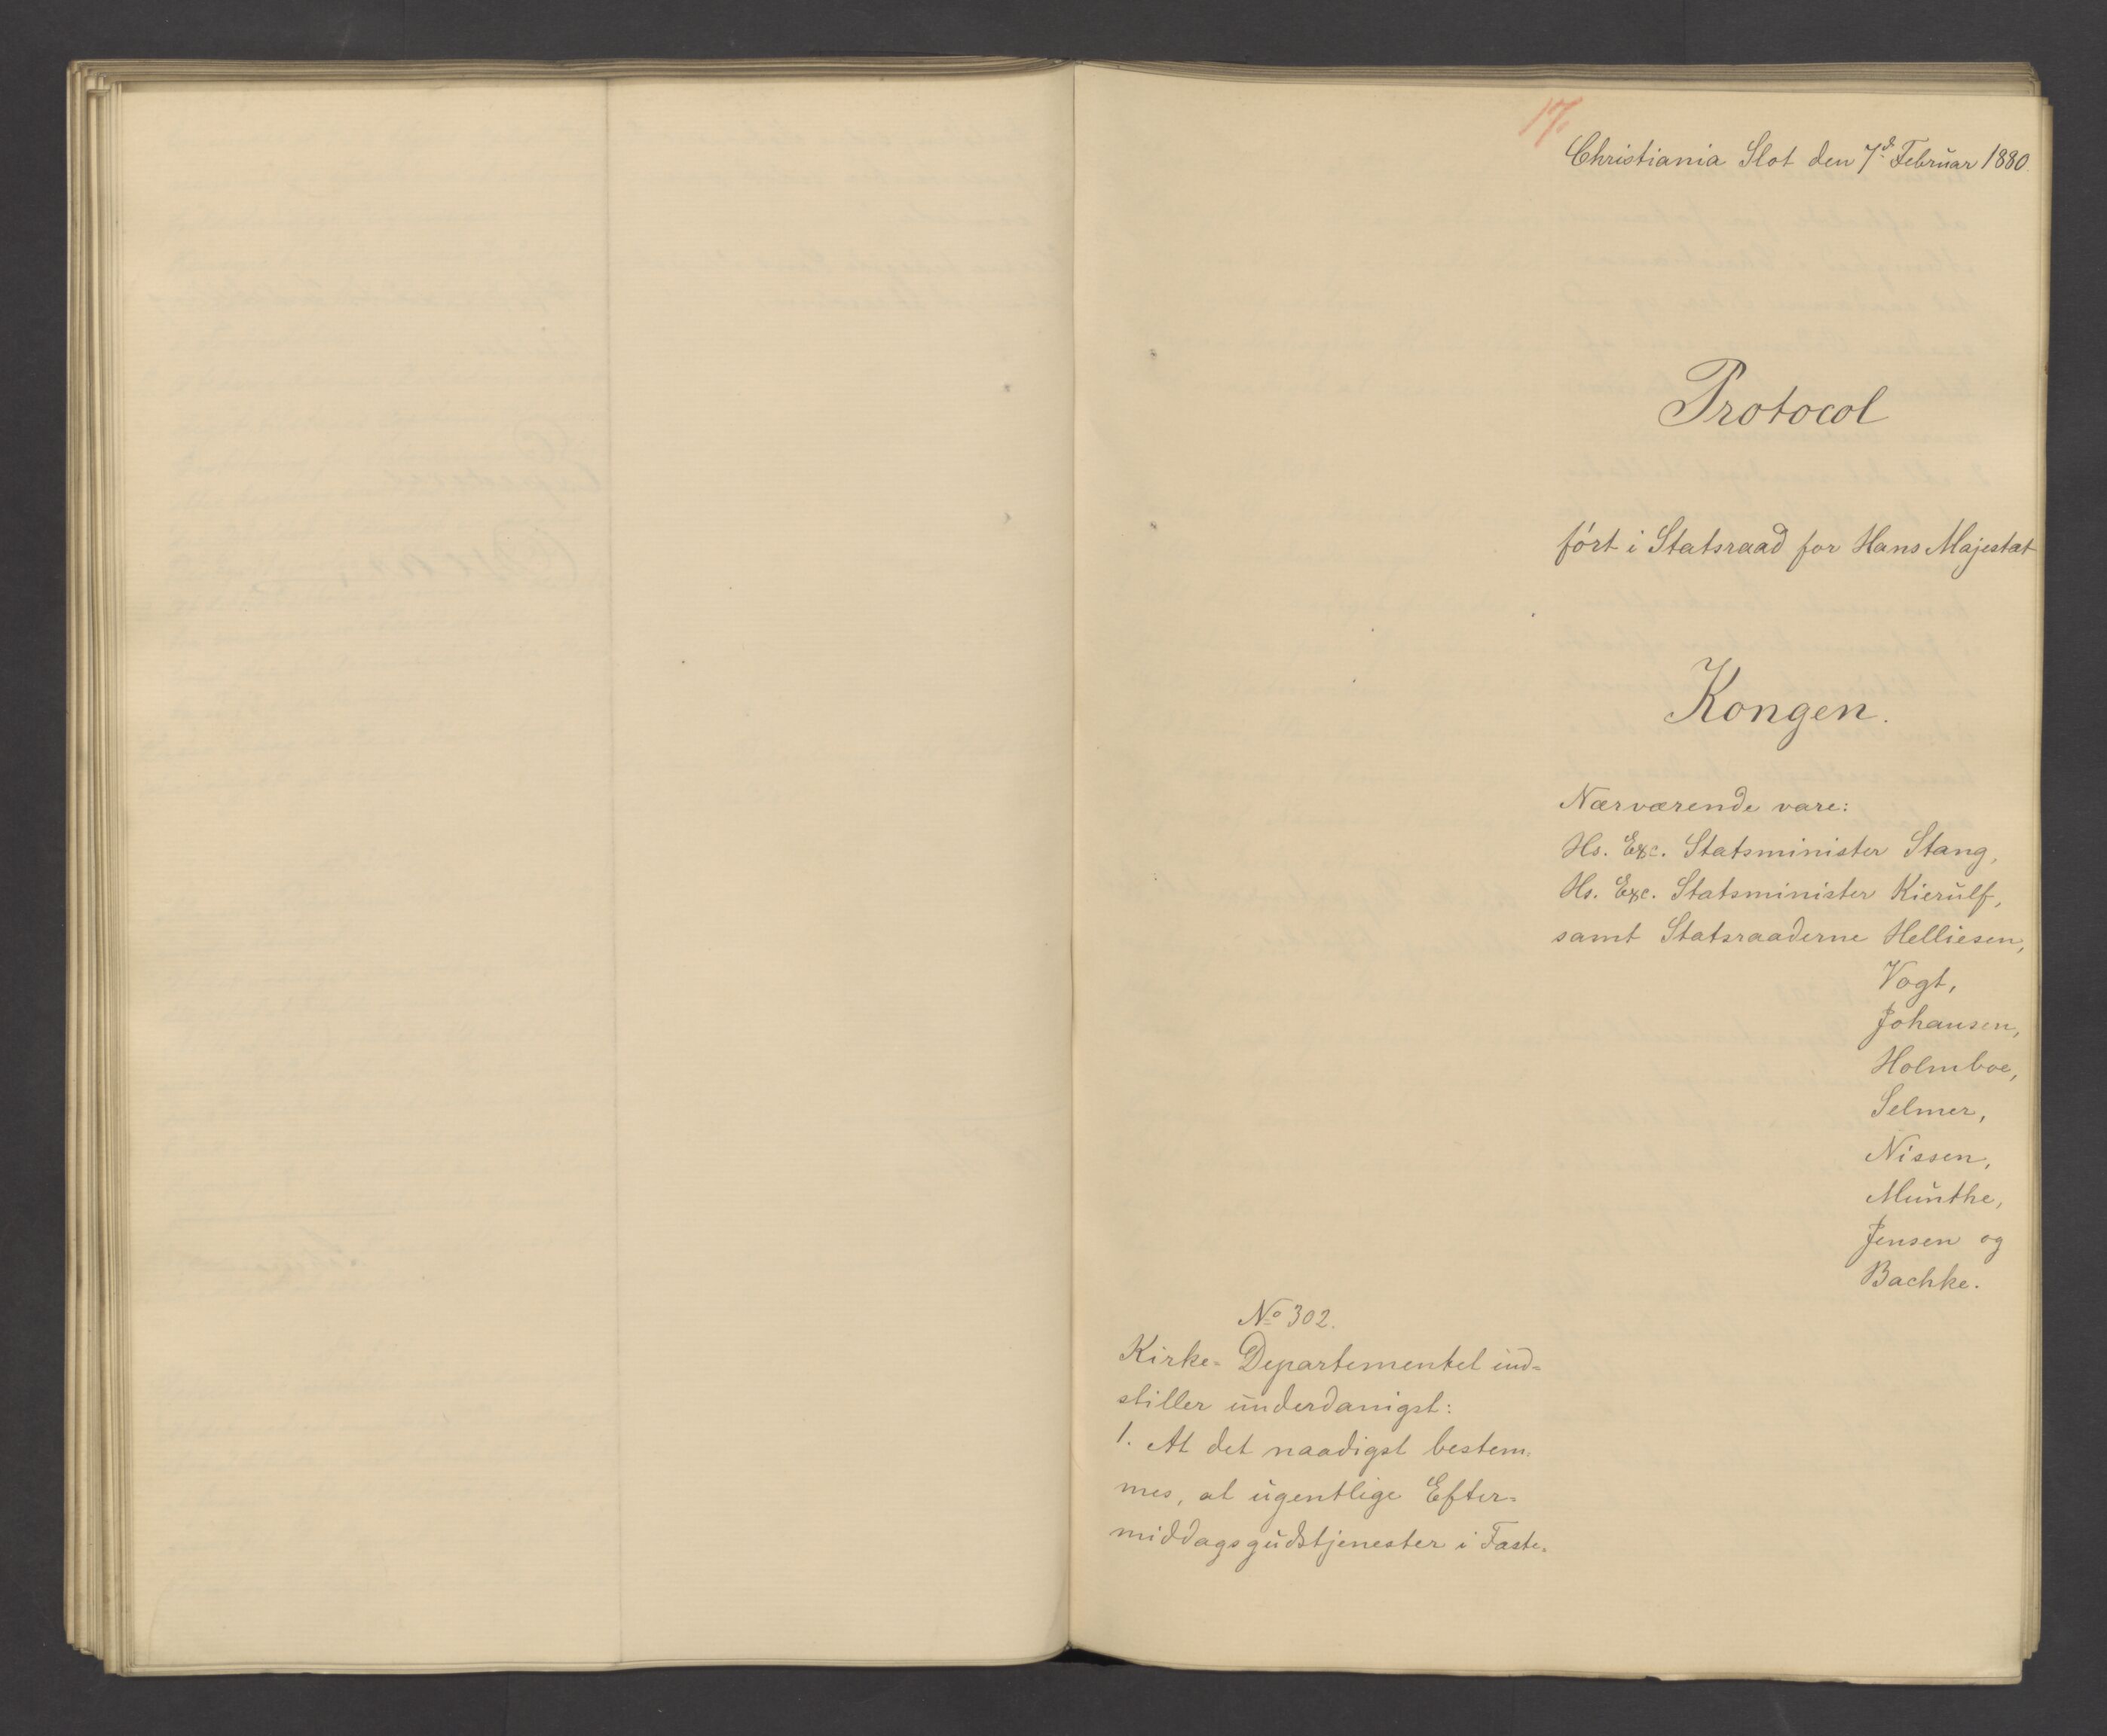 17.
Christiania Slot den 7de Februar 1880.
Protocol
ført i Statsraad for Hans Majestæt
Kongen.
Nærværende vare:
Hs. Exc. Statsminister Stang,
Hs. Exc. Statsminister Kierulf,
samt Statsraaderne Helliesen,
Vogt,
Johansen,
Holmboe,
Selmer,
Nissen,
Munthe,
Jensen og
Bachke.
No 302.
Kirke-Departementet ind-
stiller underdanigst:
1. At det naadigst bestem-
mes, at ugentlige Efter-
middagsgudstjenester i Faste-